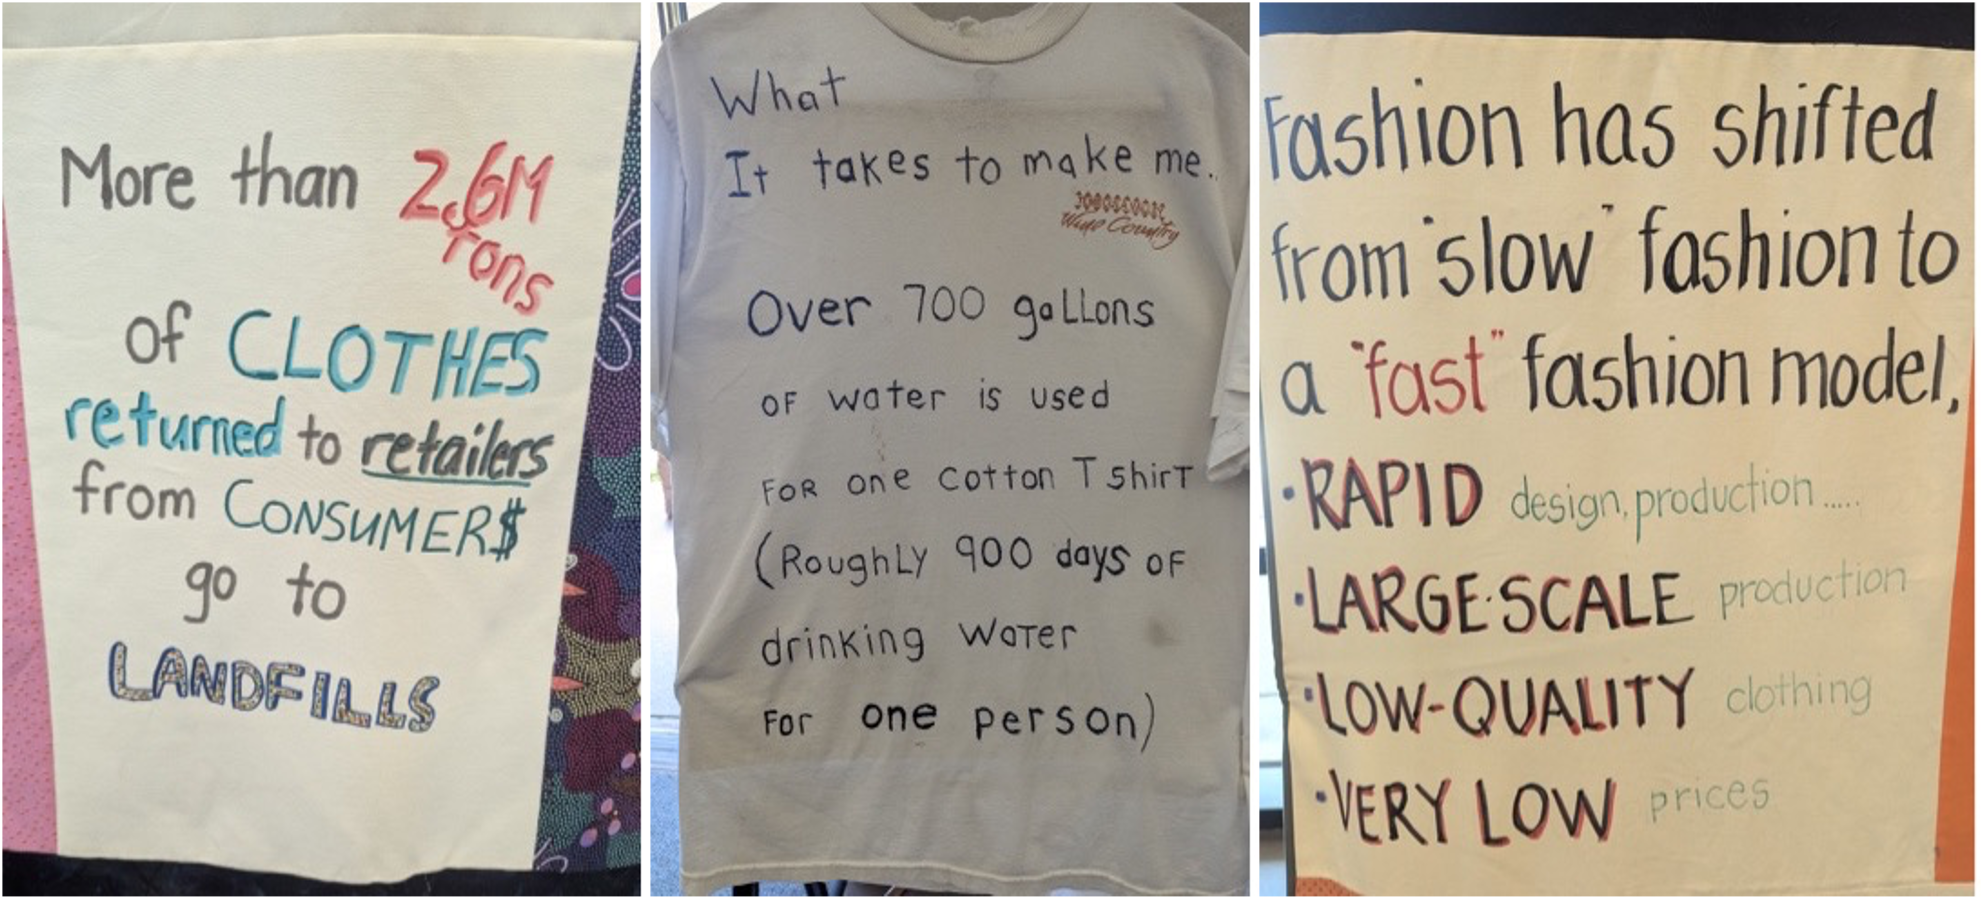 More than 2.6M
tons
of CLOTHES
returned to retailers
from CONSUMER$
go to
LANDFILLS
What
It takes to make me..
Wine Country
Over 700 gallons
of water is used
For one cotton T shirt
(Roughly 900 days of
drinking water
For one person)
Fashion has shifted
from "slow" fashion to
a "fast" fashion model,
·RAPID design, production .....
·LARGE-SCALE production
·LOW-QUALITY clothing
·VERY LOW prices